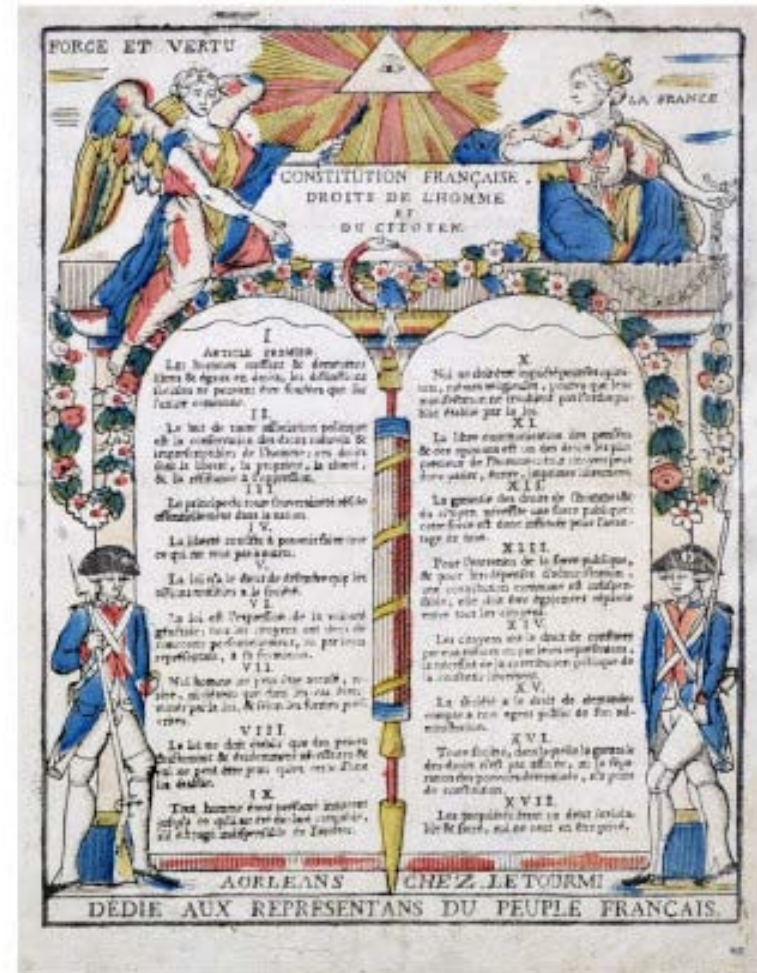 FORCE ET VERTU
LA FRANCE
CONSTITUTION FRANÇAISE.
DROITS DE L'HOMME
ET
DU CITOYEN.
I
ARTICLE PREMIER.
Les hommes naissent & demeurent
libres & égaux en droits, les distinctions
sociales ne peuvent être fondées que sur
II.
Le but de toute association politique
est la conservation des droits naturels &
imprescriptibles de l'homme; ces droits
sont la liberté, la propriété, la sûreté,
& la résistance à l'oppression.
III.
Le principe de toute souveraineté réside
essentiellement dans la nation.
IV.
La liberté consiste à pouvoir faire tout
ce qui ne
V.
La loi n'a le droit de défendre que les
actions nuisibles à la société.
VI.
La loi est l'expression de la volonté
générale; tous les citoyens ont droit de
concourir personnellement, ou par leurs
représentans, à sa formation.
VII.
Nul homme ne peut être accusé,
que dans les cas
par la loi, & selon les formes
VIII.
La loi ne doit établir que des peines
strictement & évidemment nécessaires &
nul ne peut être puni qu'en vertu d'une
IX.
Tout homme étant présumé innocent
X.
Nul ne doit être inquiété pour ses
mêmes religieuses, pourvu que leur
manifestation ne trouble pas l'ordre
établi par la loi.
XI.
La libre communication des pensées
& des opinions est un des droits les plus
précieux de l'homme: tout citoyen peut
donc parler, écrire, imprimer librement.
XII.
La garantie des droits de l'homme &
du citoyen nécessite une force publique:
cette force est donc instituée pour
de tous.
XIII.
Pour l'entretien de la force publique,
& pour les dépenses d'administration,
une contribution commune est
elle doit être également répartie
entre tous les citoyens.
XIV.
Les citoyens ont le droit de constater
par eux mêmes ou par leurs représentans,
la nécessité de la contribution publique de
la consentir librement.
XV.
La société a le droit de demander
compte à tout agent public de son
XVI.
Toute société, dans laquelle la garantie
des droits n'est pas assurée, ni la
des pouvoirs déterminée, n'a point
de constitution.
XVII.
Les propriétés étant un droit
& sacré, nul ne peut en être privé.
AORLEANS CHEZ LETOURMI
DÉDIE AUX REPRESENTANS DU PEUPLE FRANÇAIS.